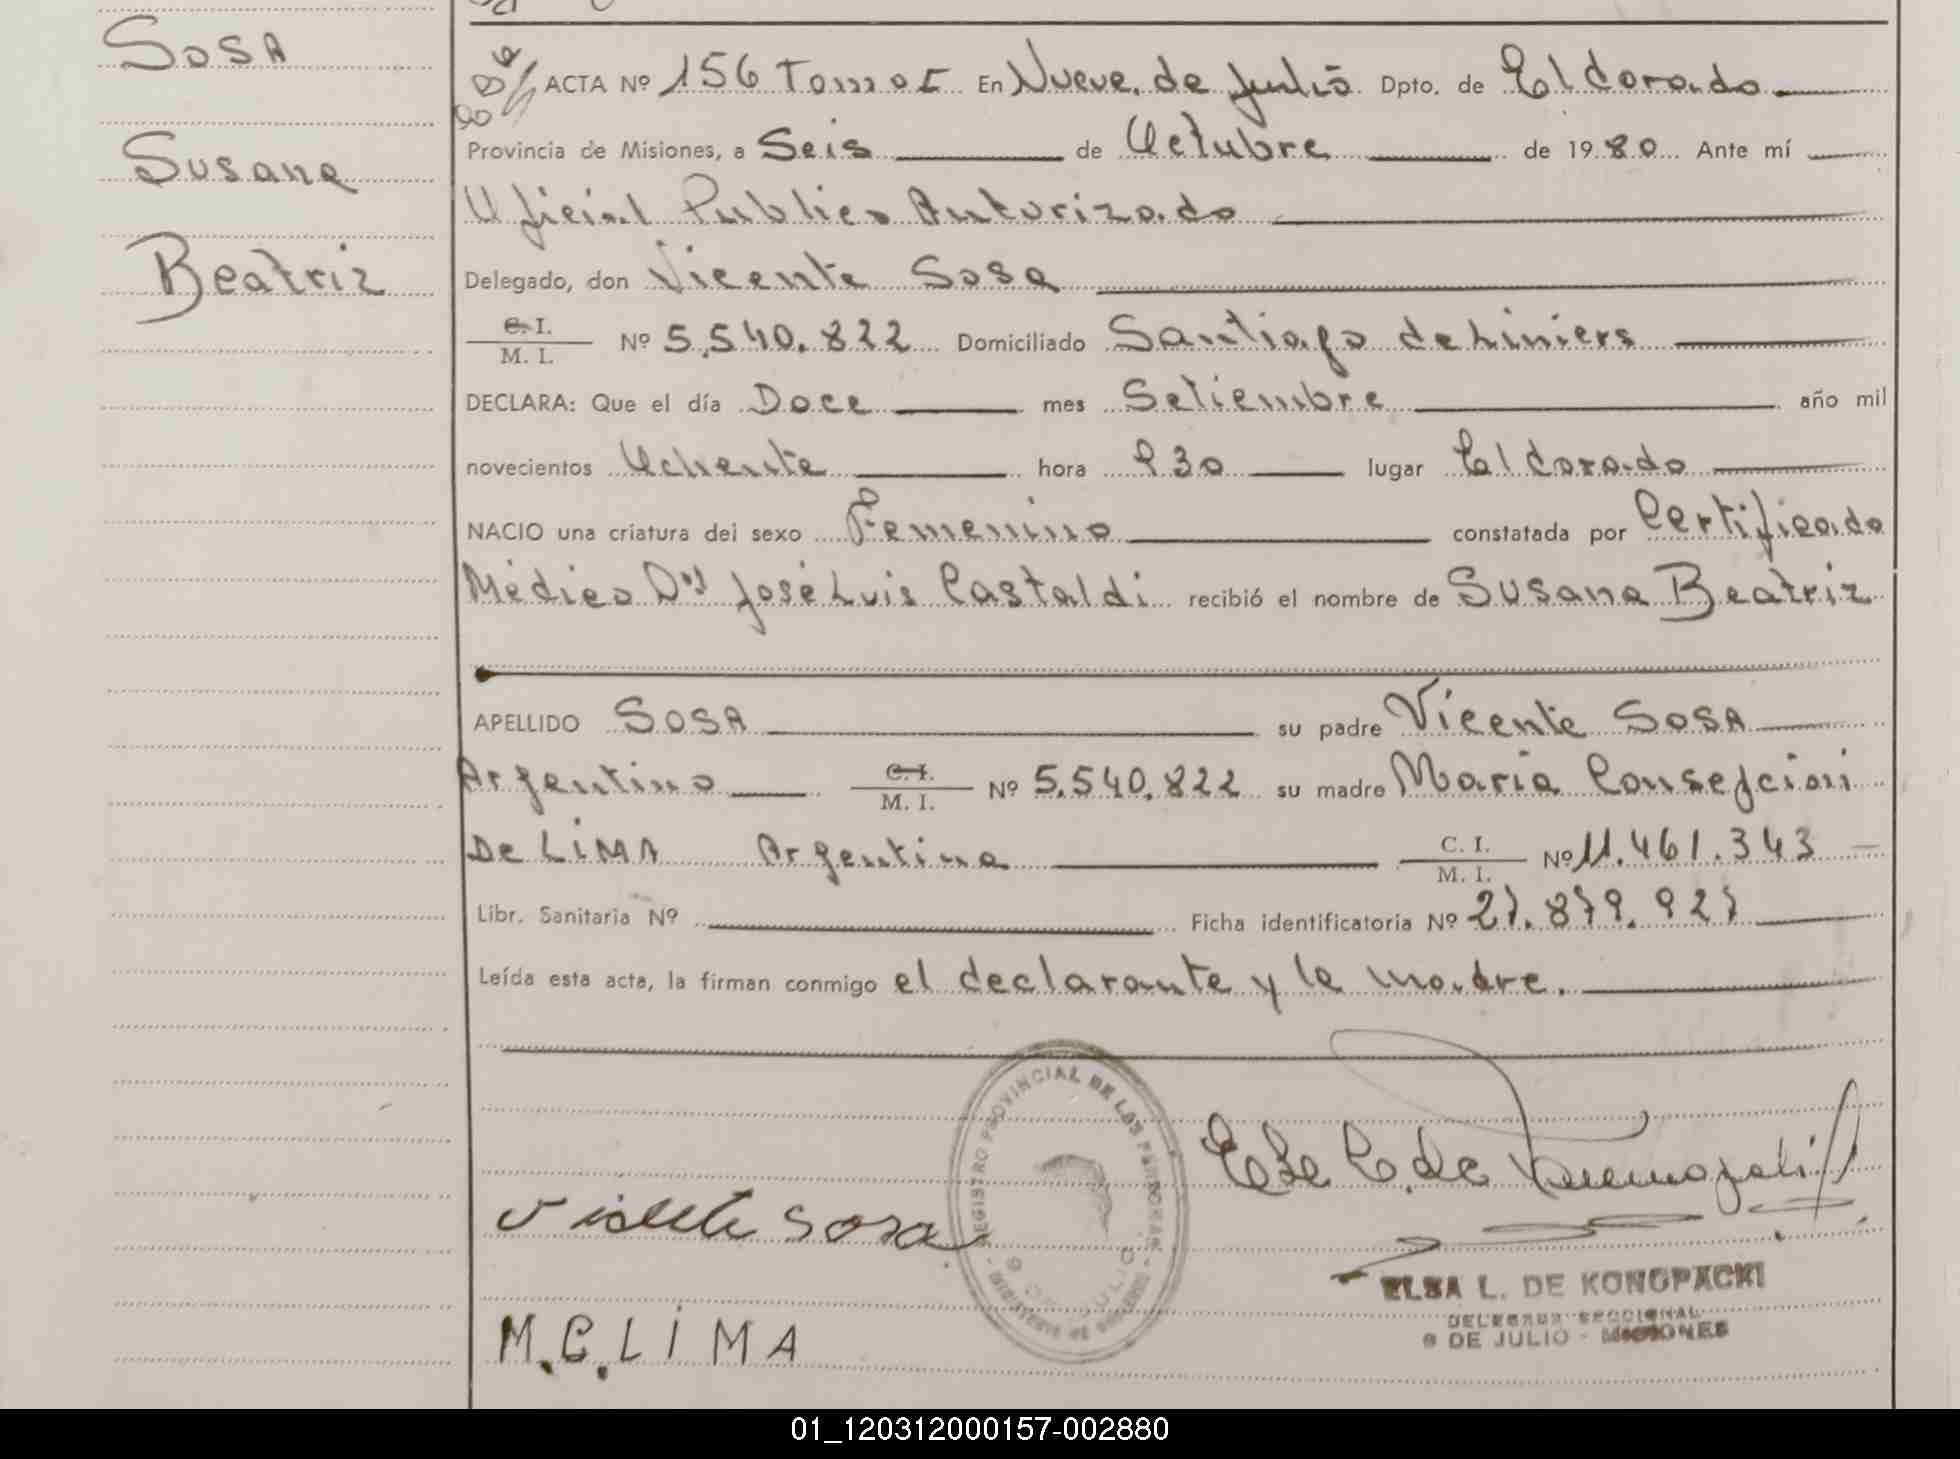 SOSA
Susana
Beatriz
ACTA Nº 156 Tomo I En Nueve de Julio Dpto. de Eldorado
Provincia de Misiones, a Seis de Octubre de 1980 Ante mí
Oficial Publico Autorizado
Delegado, don Vicente Sosa
C. I.
M. I. Nº 5.540.822 Domiciliado Santiago de Liniers
DECLARA: Que el día Doce mes Setiembre año mil
novecientos Ochenta hora 930 lugar Eldorado
NACIO una criatura del sexo Femenino constatada por Certificado
Médico José Luis Castaldi recibió el nombre de Susana Beatriz
APELLIDO SOSA su padre Vicente SOSA
Argentino C. I.
M. I. Nº 5.540.822 su madre Maria Consepcion
De LIMA Argentina C. I.
M. I. Nº 11.461.343
Libr. Sanitaria Nº Ficha identificatoria Nº 27.879.927
Leída esta acta, la firman conmigo el declarante y la madre.
REGISTRO PROVINCIAL DE LAS PERSONAS
Vicente Sosa
ELSA L. DE KONOPACKI
DELEGADA SECCIONAL
9 DE JULIO - MISIONES
M.C. LIMA
01_120312000157-002880